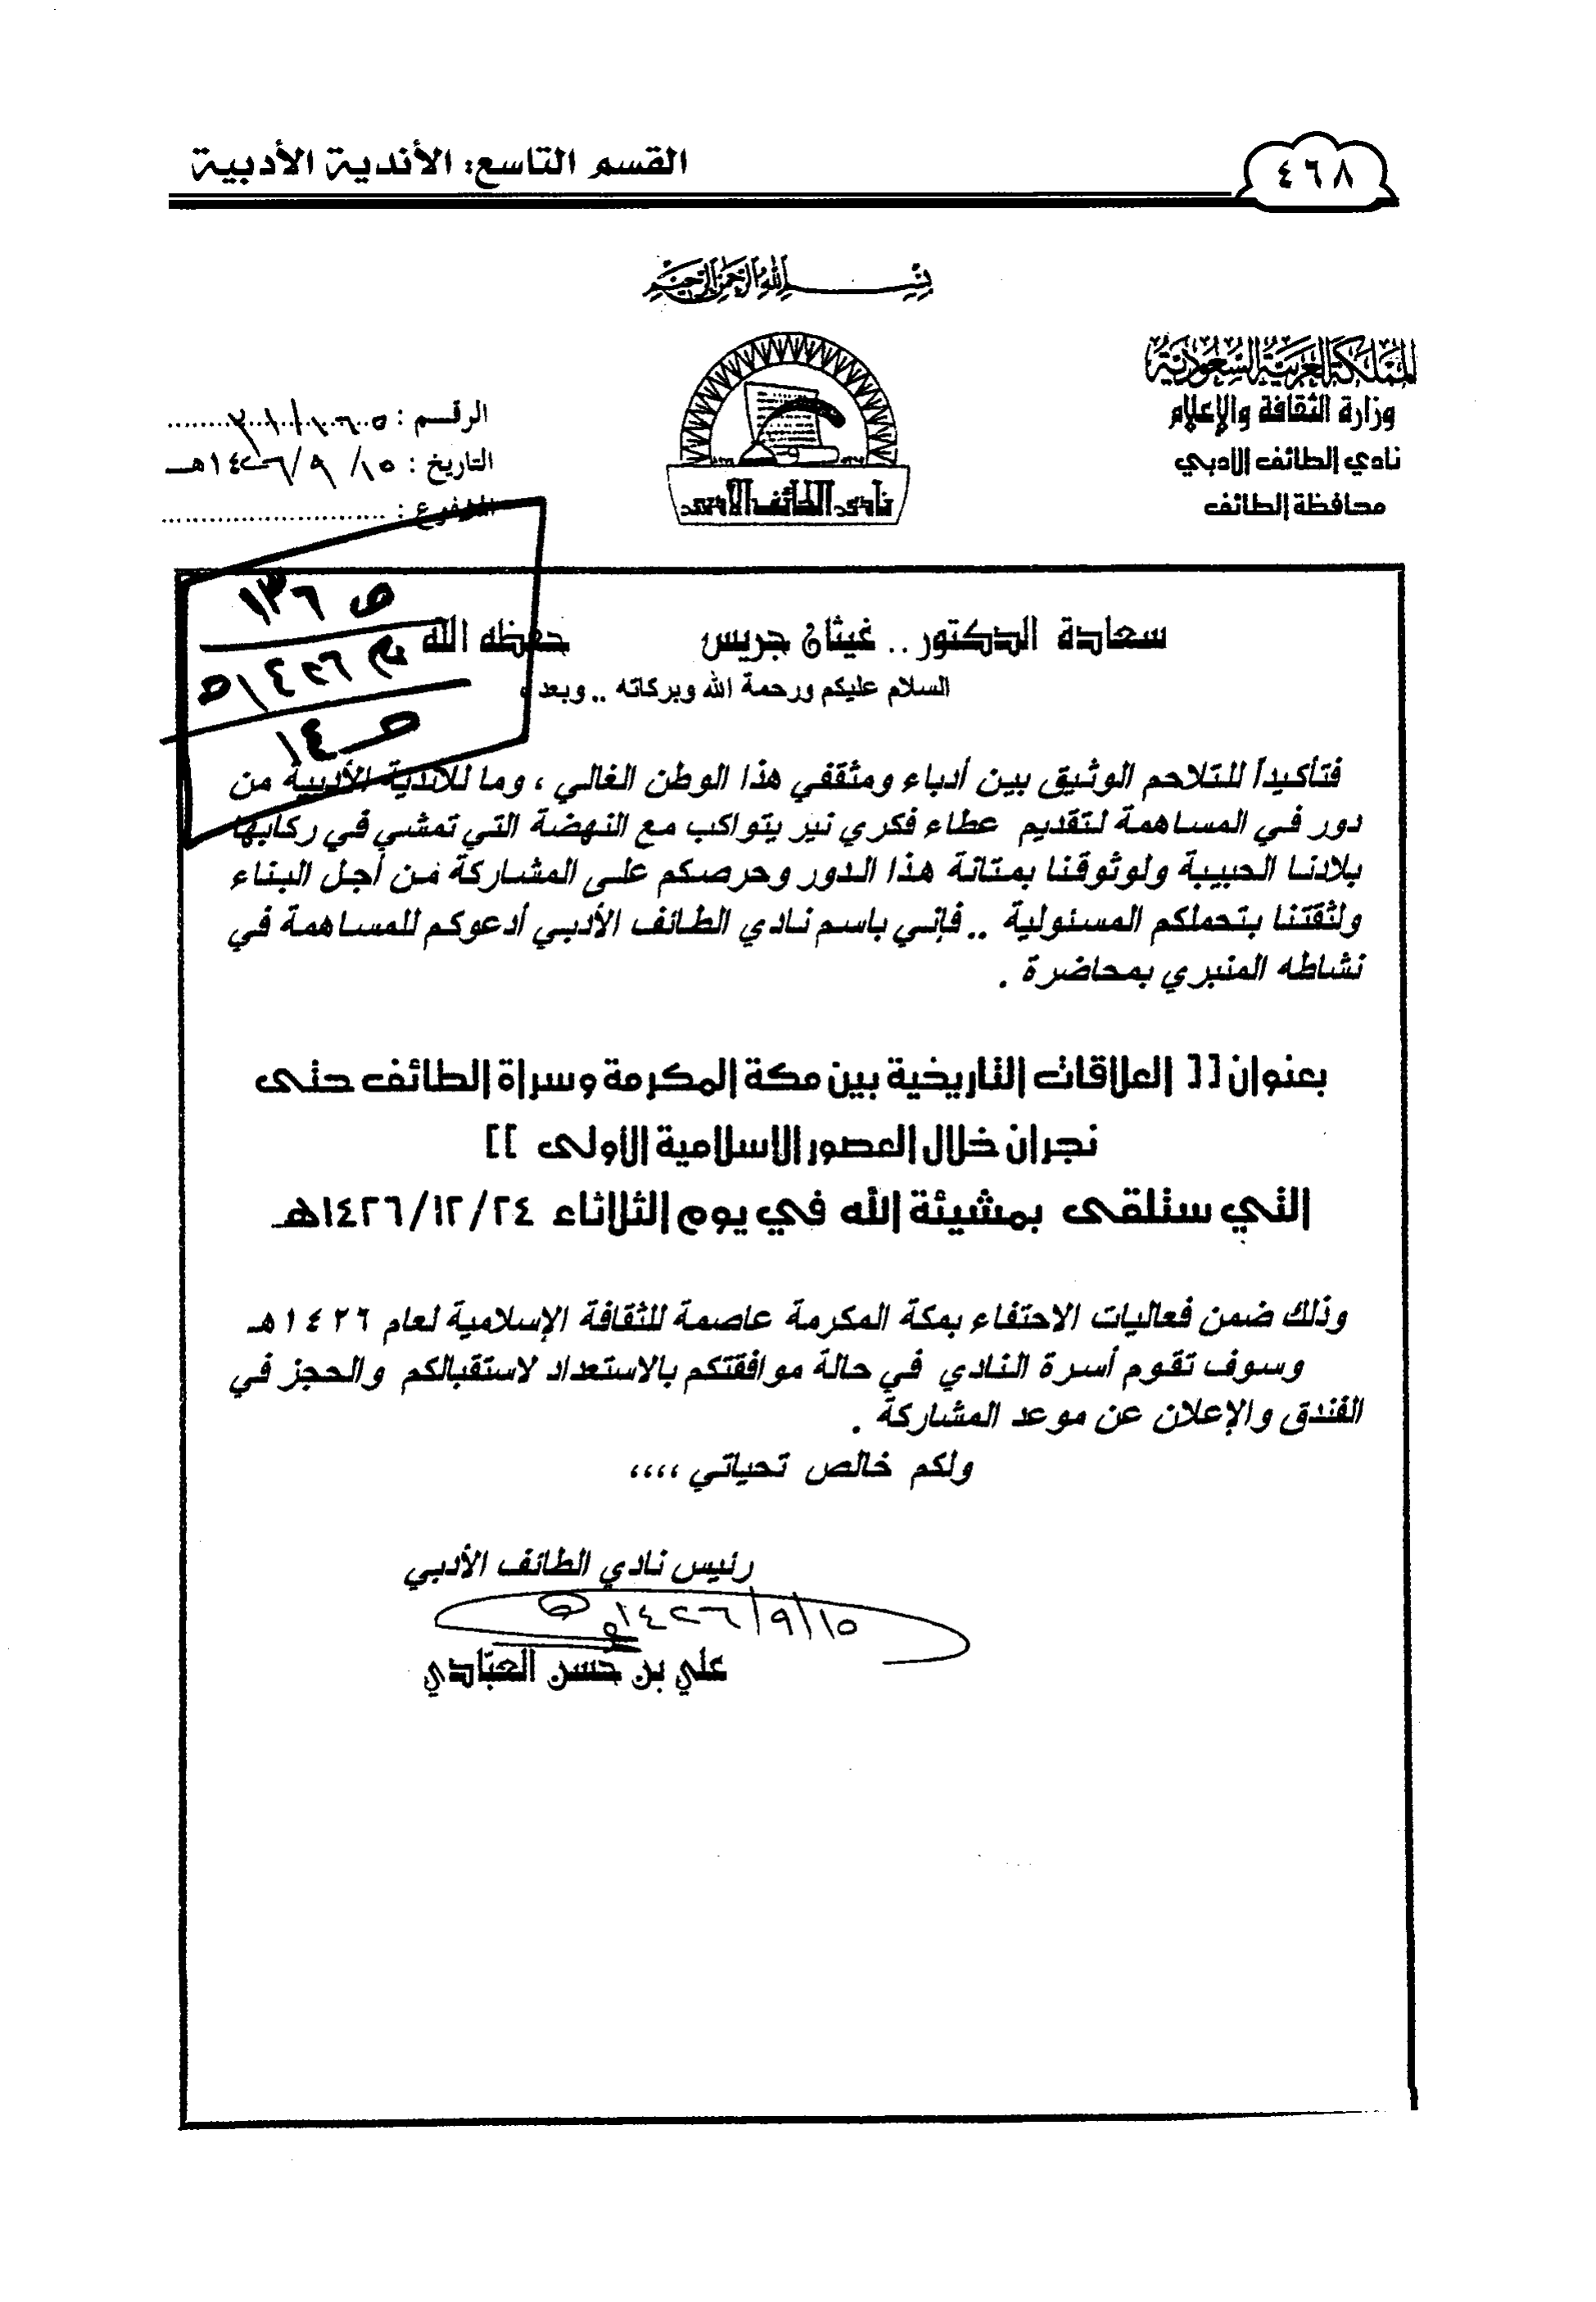 ٤٦٨
القسم التاسع: الأندية الأدبية
بسم الله الرحمن الرحيم
المملكة العربية السعودية
وزارة الثقافة والإعلام
نادي الطائف الأدبي
محافظة الطائف
نادي الطائف الأدبي
الرقم :
التاريخ : ١٥/ ٩/ ١٤٢٦هـ
المرفوع :
ص ١٣٦
١٤٢٦هـ
ص ١٤
سعادة الدكتور .. غيثان جريس حفظه الله
السلام عليكم ورحمة الله وبركاته .. وبعد ،
فتأكيداً للتلاحم الوثيق بين أدباء ومثقفي هذا الوطن الغالي ، وما للأندية الأدبية من
دور في المساهمة لتقديم عطاء فكري نير يتواكب مع النهضة التي تمشي في ركابها
بلادنا الحبيبة ولوثوقنا بمتانة هذا الدور وحرصكم على المشاركة من أجل البناء
ولثقتنا بتحملكم المسئولية .. فإني باسم نادي الطائف الأدبي أدعوكم للمساهمة في
نشاطه المنبري بمحاضرة .
بعنوان [[ العلاقات التاريخية بين مكة المكرمة وسراة الطائف حتى
نجران خلال العصور الاسلامية الأولى ]]
التي ستلقى بمشيئة الله في يوم الثلاثاء ١٤٢٦/١٢/٢٤هـ
وذلك ضمن فعاليات الاحتفاء بمكة المكرمة عاصمة للثقافة الإسلامية لعام ١٤٢٦هـ
وسوف تقوم أسرة النادي في حالة موافقتكم بالاستعداد لاستقبالكم والحجز في
الفندق والإعلان عن موعد المشاركة .
ولكم خالص تحياتي ،،،،
رئيس نادي الطائف الأدبي
١٥/٩/١٤٢٦هـ
علي بن حسن العبّادي